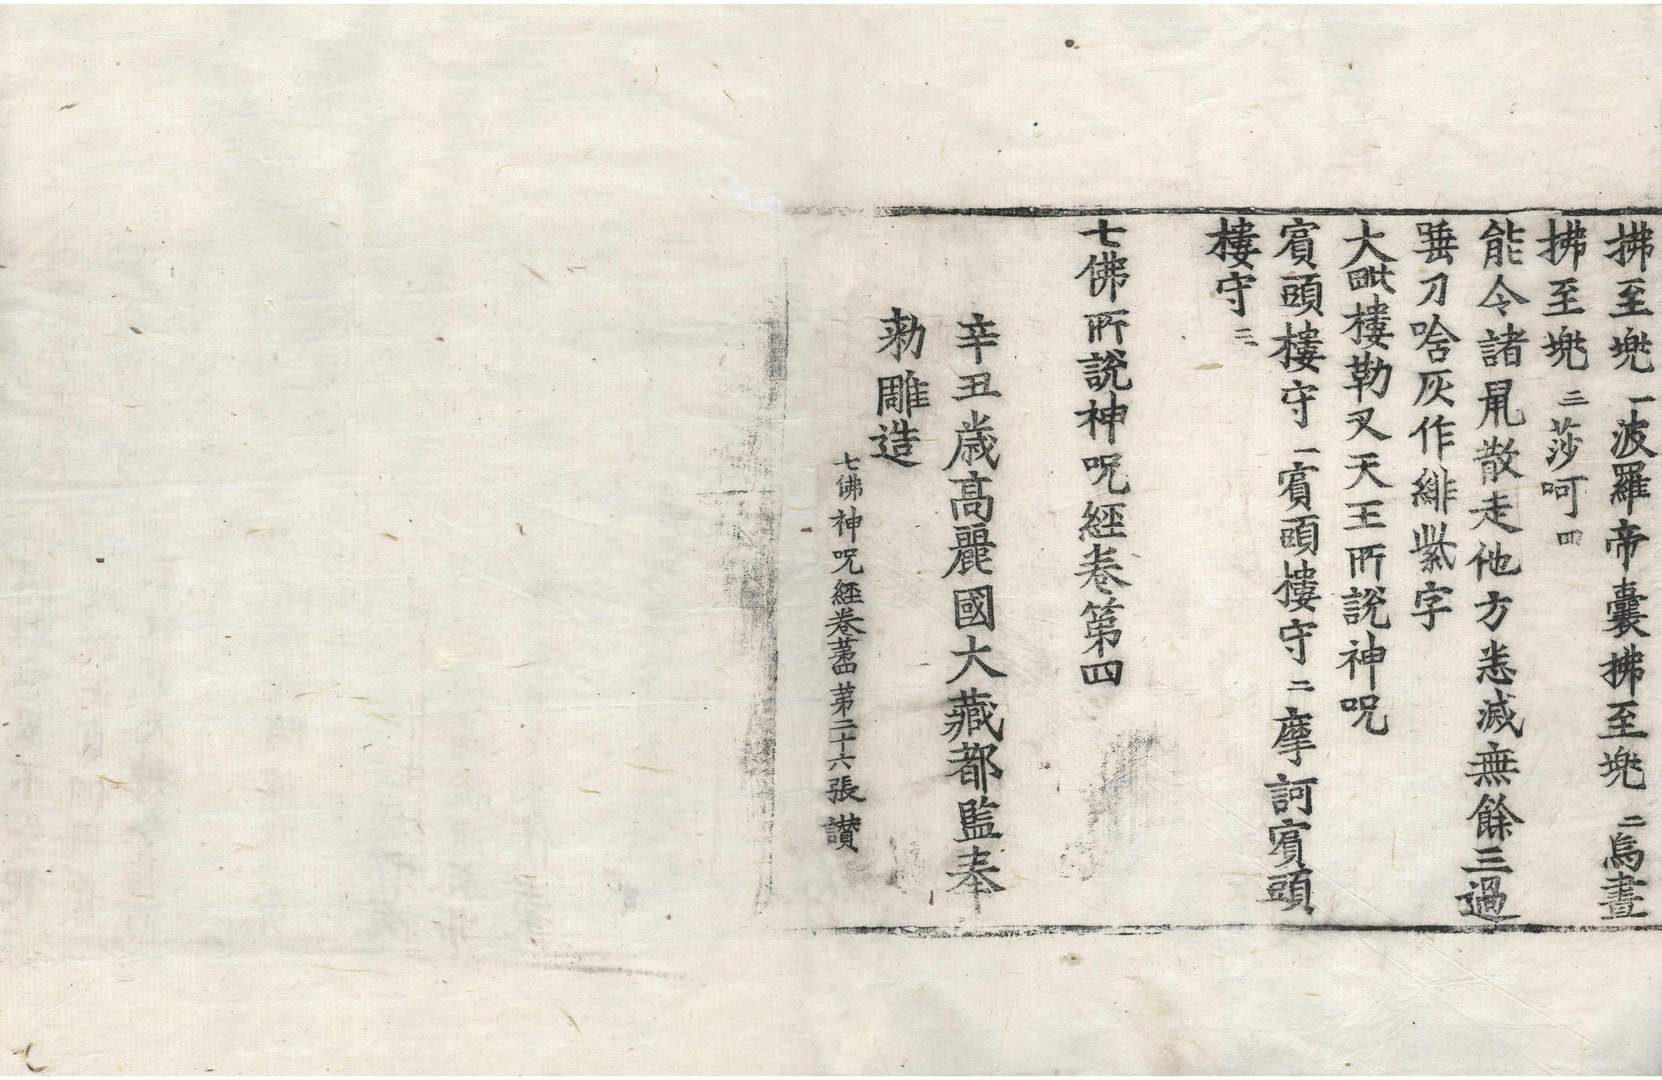 拂至兠一波羅帝囊拂至兠二烏晝
拂至兠三莎呵四
能令諸鼠散走他方悉滅無餘三過
垂刀唅灰作緋紫字
大毗樓勒叉天王所說神呪
賔頭樓守一賔頭樓守二摩訶賔頭
樓守三
七佛所說神呪經卷第四
辛丑歲高麗國大藏都監奉
勑雕造
七佛神呪經卷第四 第二十六張 讃